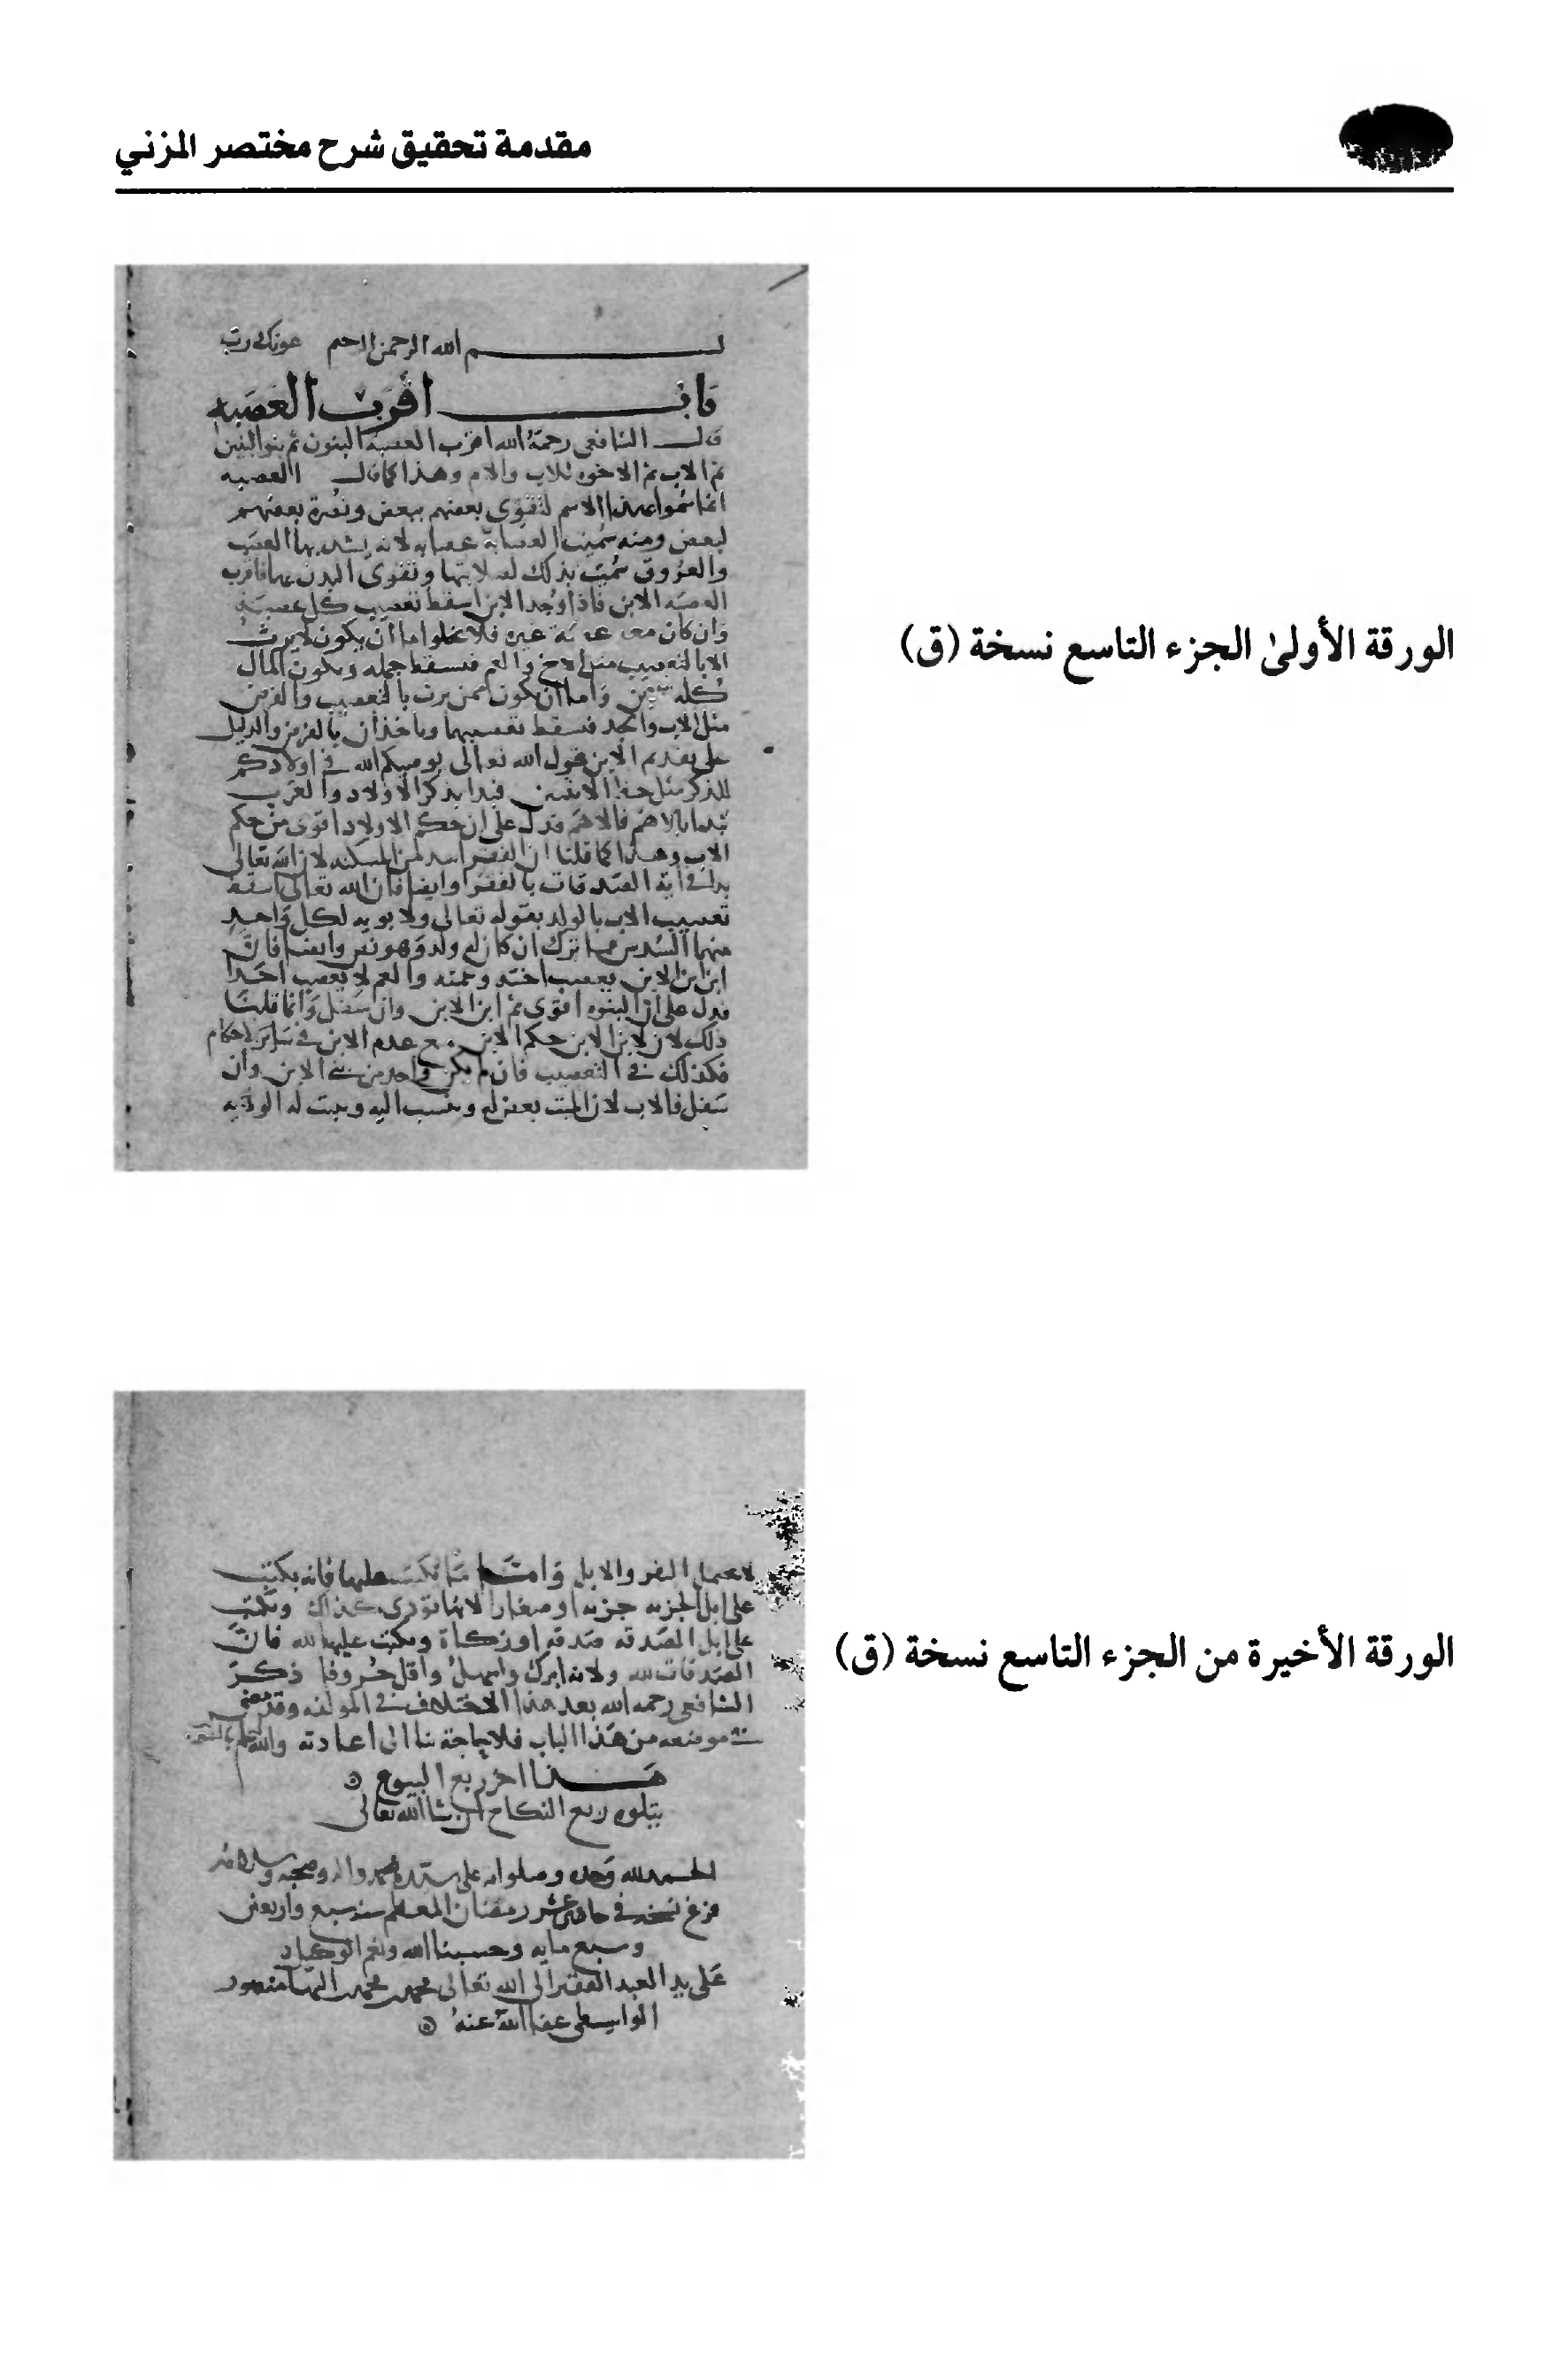 مقدمة تحقيق شرح مختصر المزني
بسم الله الرحمن الرحيم عونك يا رب
باب اقرب العصبه
قال الشافعي رحمة الله اقرب العصبة البنون ثم بنوا البنين
ثم الاب ثم الاخوه للاب والام وهذا كما قال العصبه
انما سموا بهذا الاسم لتقوي بعضهم ببعض ونصرة بعضهم
لبعض ومنه سميت العصابة عصابه لانه يشد بها العصب
والعروق سميت بذلك لصلابتها وتقوى البدن بها فاقرب
العصبه الابن فاذا وجد الابن اسقط تعصيب كل عصبة
وان كان معه عصبة غيره فلا يخلوا اما ان يكون لا يرث
الا بالتعصيب مثل الاخ والعم فيسقط جمله ويكون المال
كله للابن واما ان يكون ممن يرث بالتعصيب والفرض
مثل الاب والجد فيسقط تعصيبهما وياخذان بالفرض والدليل
على تقديم الابن قول الله تعالى يوصيكم الله في اولادكم
للذكر مثل حظ الانثيين فبدا بذكر الاولاد والعرب
تبدا بالاهم فالاهم فدل على ان حكم الاولاد اقوى من حكم
الاب وهذا كما قلنا ان الفقر اشد من المسكنه لان الله تعالى
بدا في اية الصدقات بالفقرا وايضا فان الله تعالى اسقط
تعصيب الاب بالولد بقوله تعالى ولابويه لكل واحد
منهما السدس مما ترك ان كان له ولد وهو نص وايضا فان
ابن ابن الابن يعصب اخته وعمته والعم لا يعصب احدا
فدل على ان البنوه اقوى ثم ابن الابن وان سفل وانما قلنا
ذلك لان لابن الابن حكم الابن مع عدم الابن في سائر الاحكام
فكذلك في التعصيب فان لم يكن واحد من بني الابن وان
سفل فالاب لان الميت بعض له وينسب اليه ويثبت له الولايه
الورقة الأولىٰ الجزء التاسع نسخة (ق)
لا تحمل البقر والابل واما ما يكتب عليها فانه يكتب
على ابل الجزيه جزيه او صغارا لانها تؤدى كذلك ويكتب
على ابل الصدقه صدقه او زكاة ويكتب عليها لله فان
الصدقات لله ولانه ابرك واسهل واقل حروفا ذكر
الشافعي رحمه الله بعد هذا الاختلاف في المولفه وقد مضى
في موضعه من هذا الباب فلا حاجة بنا الى اعادته والله
هذا اخر ربع البيوع
يتلوه ربع النكاح ان شا الله تعالى
الحمد لله وحده وصلواته على سيدنا محمد واله وصحبه وسلامه
فرغ نسخه في عشر رمضان المعظم سنه سبع واربعين
وسبع مايه وحسبنا الله ونعم الوكيل
على يد العبد الفقير الى الله تعالى محمد محمد منصور
الواسطي عفا الله عنه
الورقة الأخيرة من الجزء التاسع نسخة (ق)